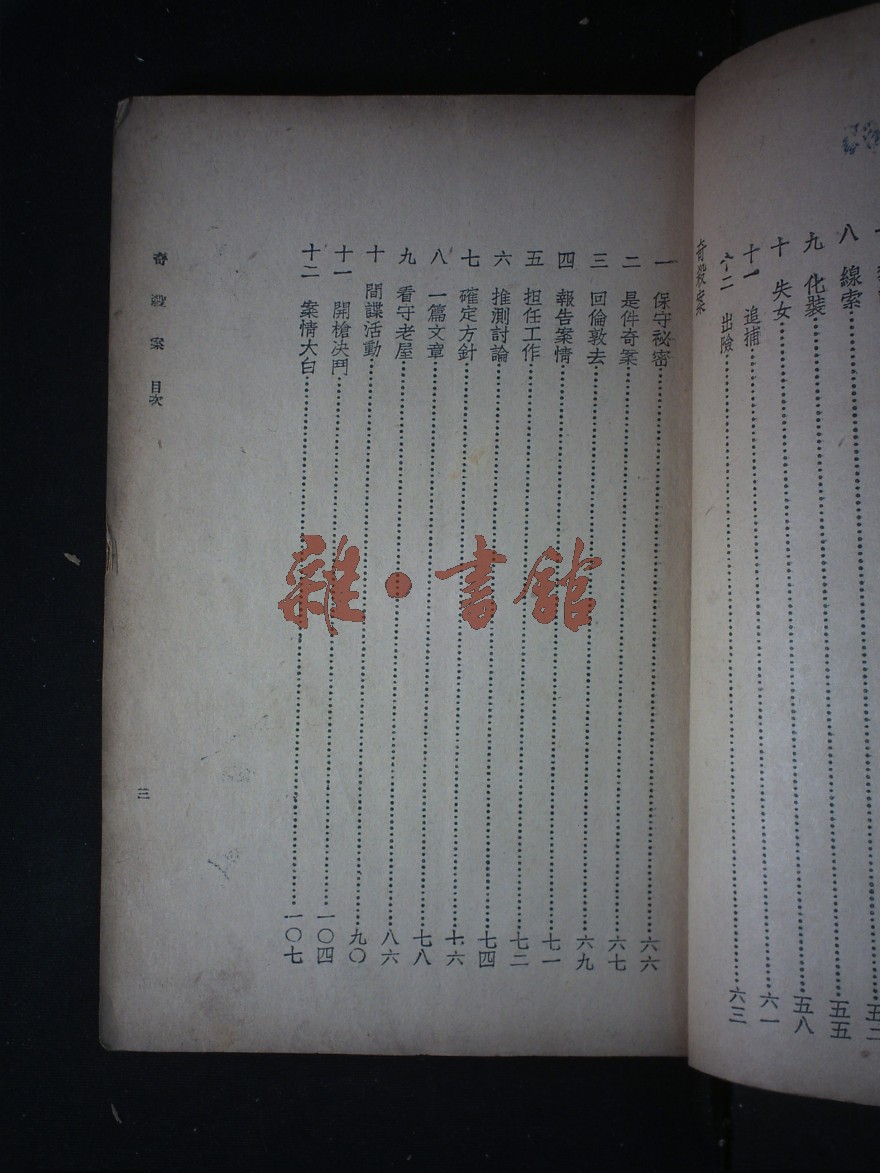 八 線索 五五
九 化裝 五八
十 失女
十一 追捕 六一
十二 出險 六三
奇殺案
一 保守祕密 六六
二 是件奇案 六七
三 回倫敦去 六九
四 報告案情 七一
五 担任工作 七二
六 推測討論 七四
七 確定方針 七六
八 一篇文章 七八
九 看守老屋 八六
十 間諜活動 九〇
十一 開槍決鬥 一〇四
十二 案情大白 一〇七
奇殺案 目次
三
雜·書館